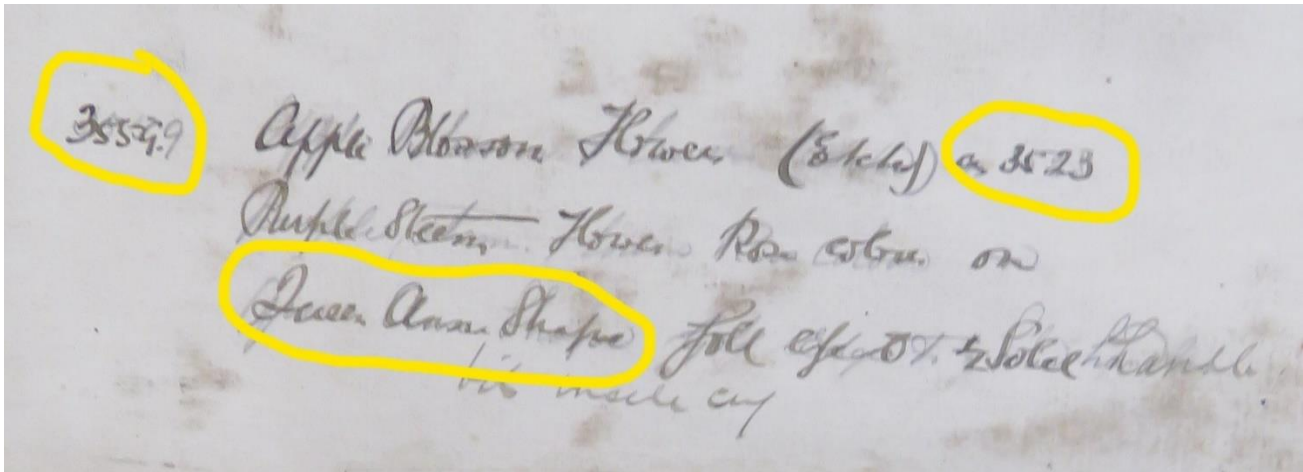 3554.9 Apple Blossom Flower (Etched) as 3523
Purple Steem Flower Rose colour on
Queen Anne Shape Gold & Solid Handle
inside cup